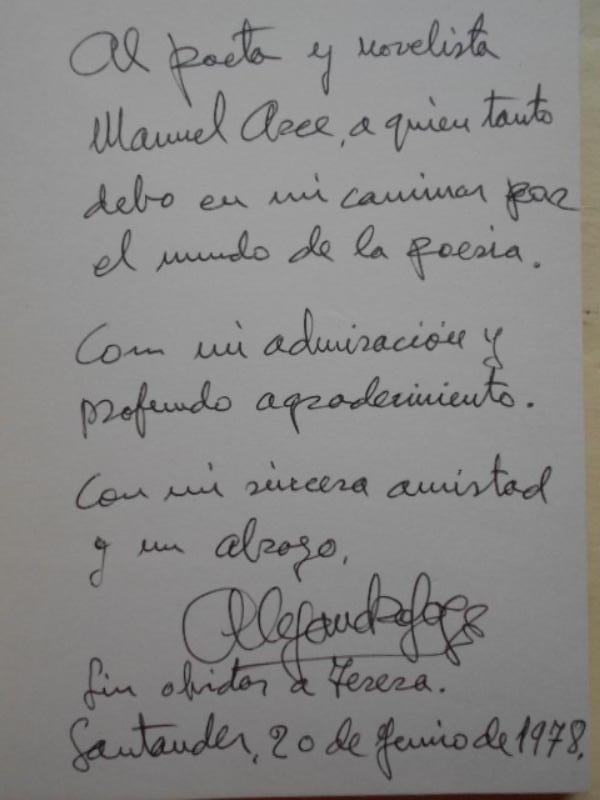 Al poeta y novelista
Manuel Arce, a quien tanto
debo en mi caminar por
el mundo de la poesia.
Con mi admiración y
profundo agradecimiento.
Con mi sincera amistad
y un abrazo,
Alejandro
Sin olvidar a Tereza.
Santander, 20 de Junio de 1978.